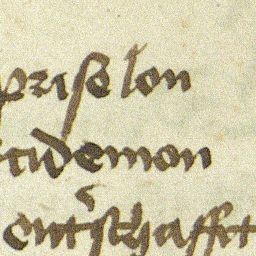 prise lon
cidemon
entschafft